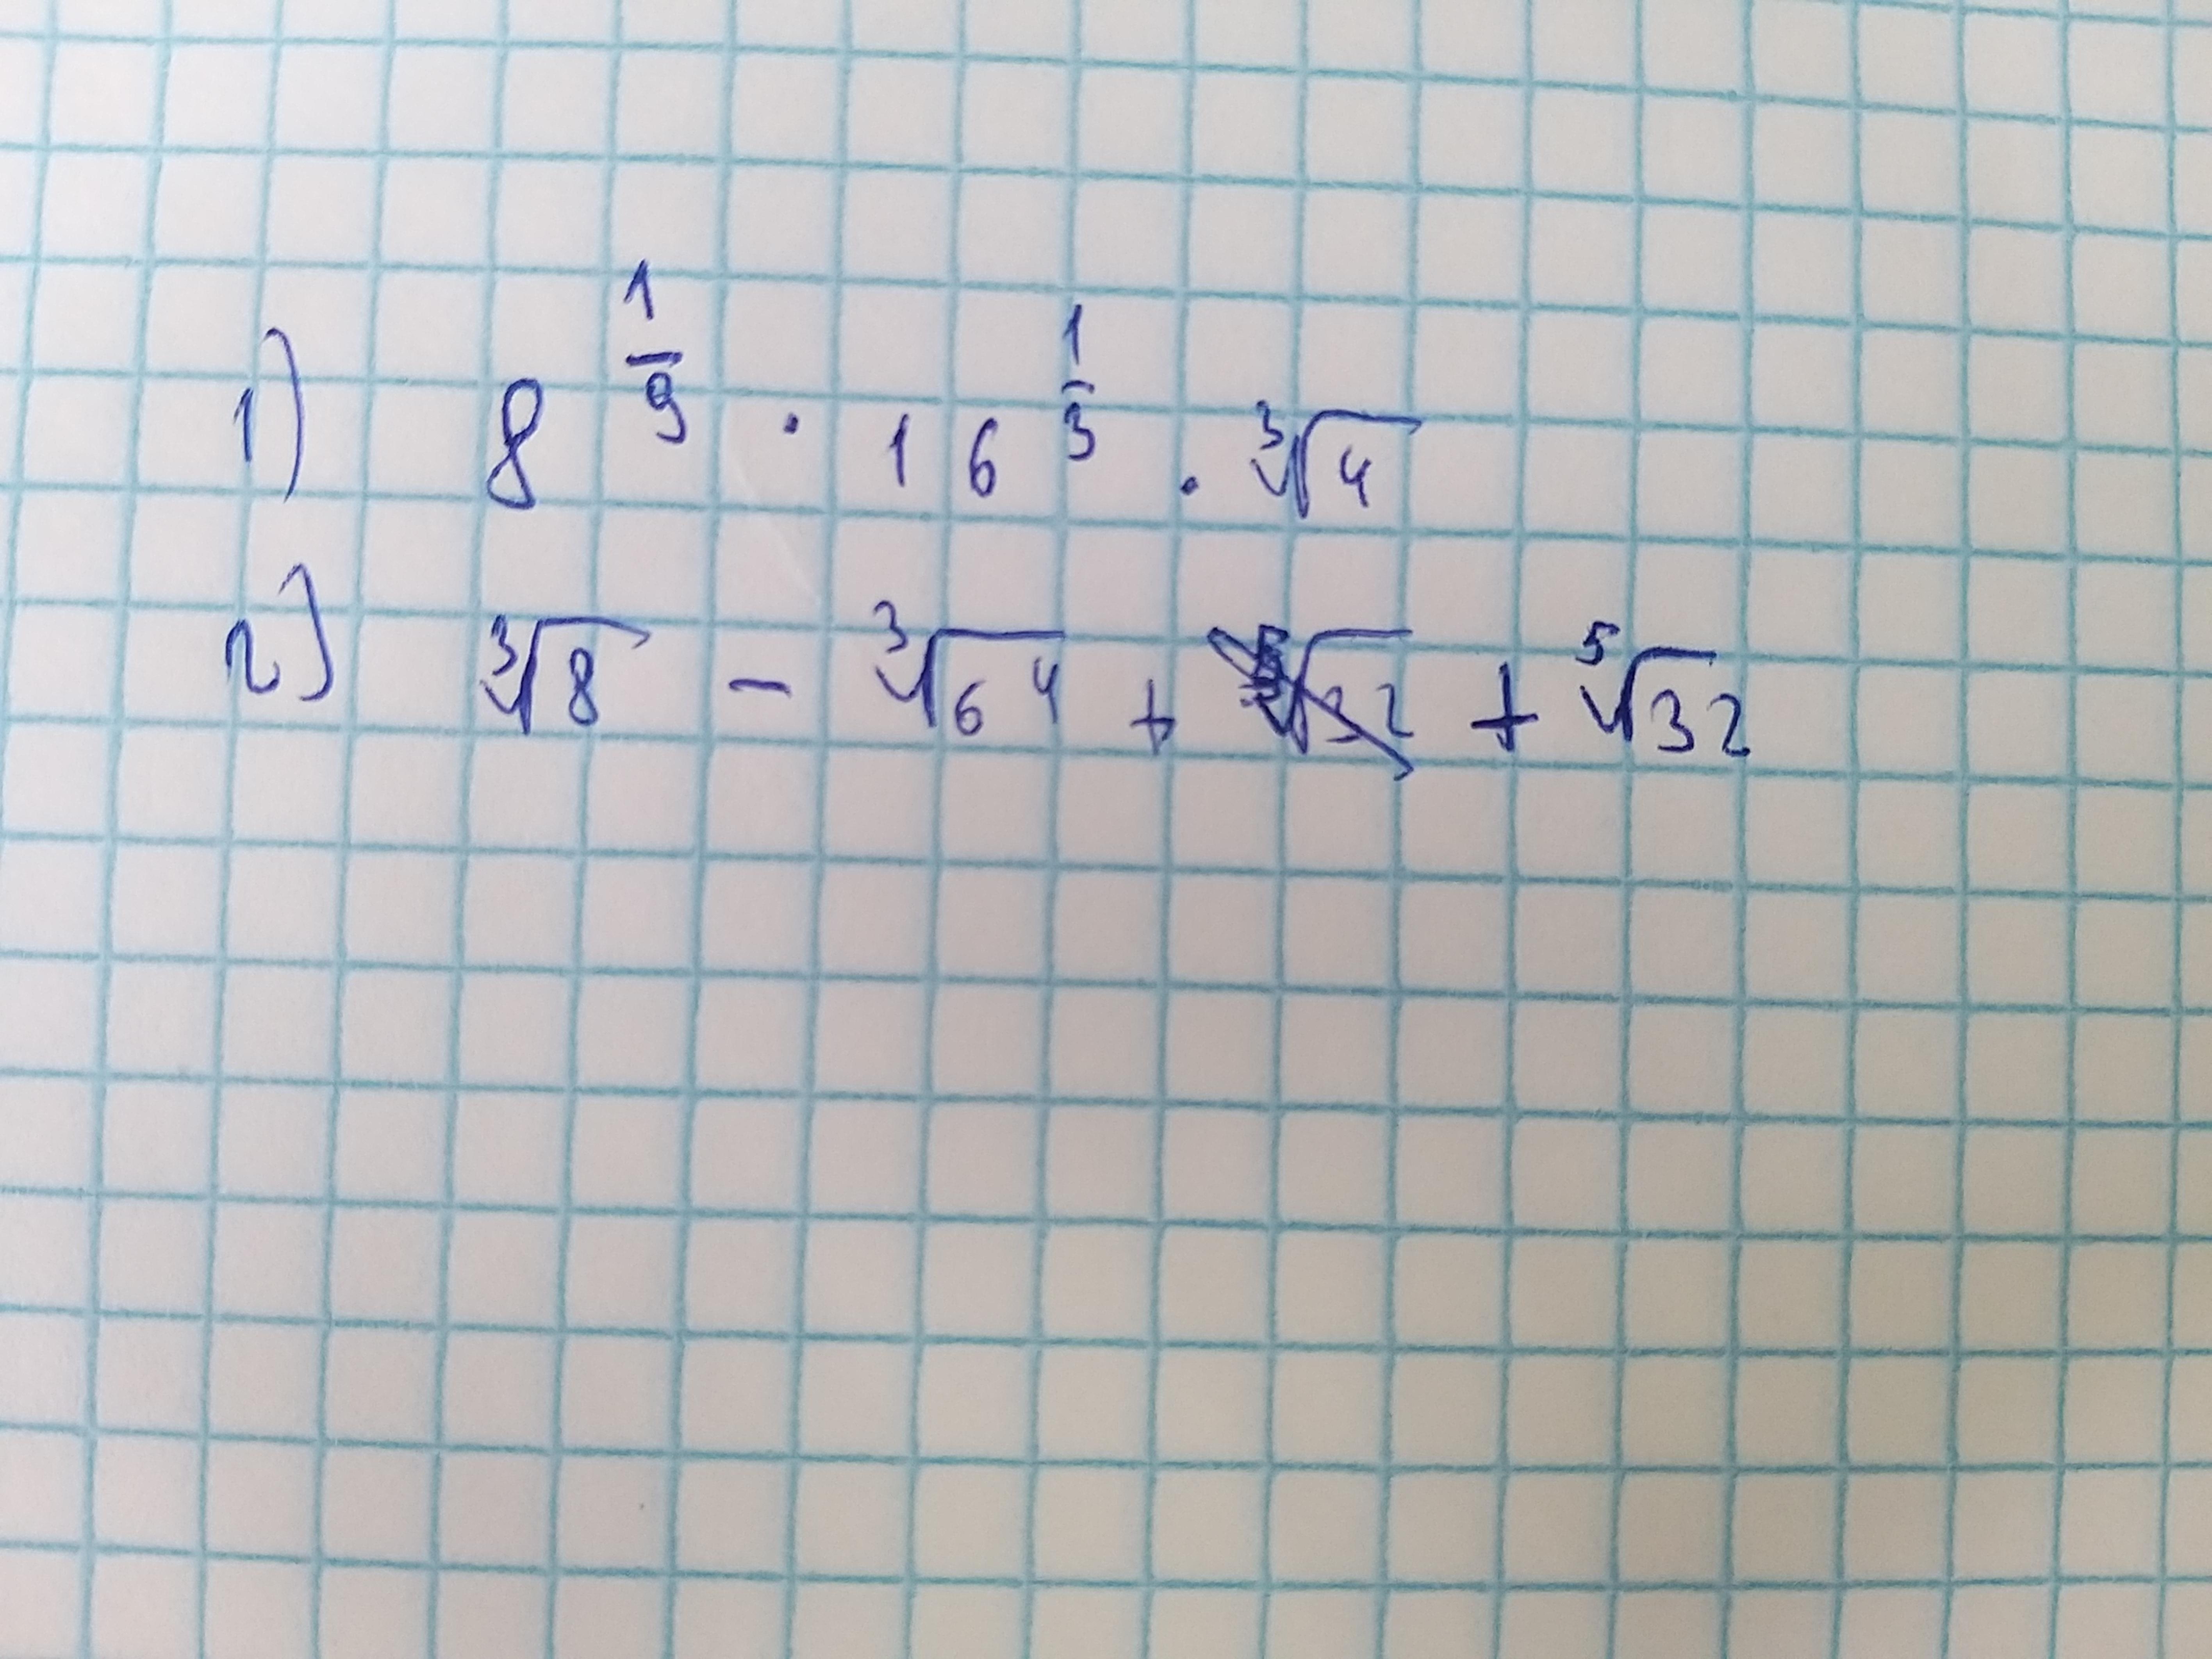 1) 8^(1/9) · 16^(1/3) · ∛4
2) ∛8 - ∛64 + + ⁵√32